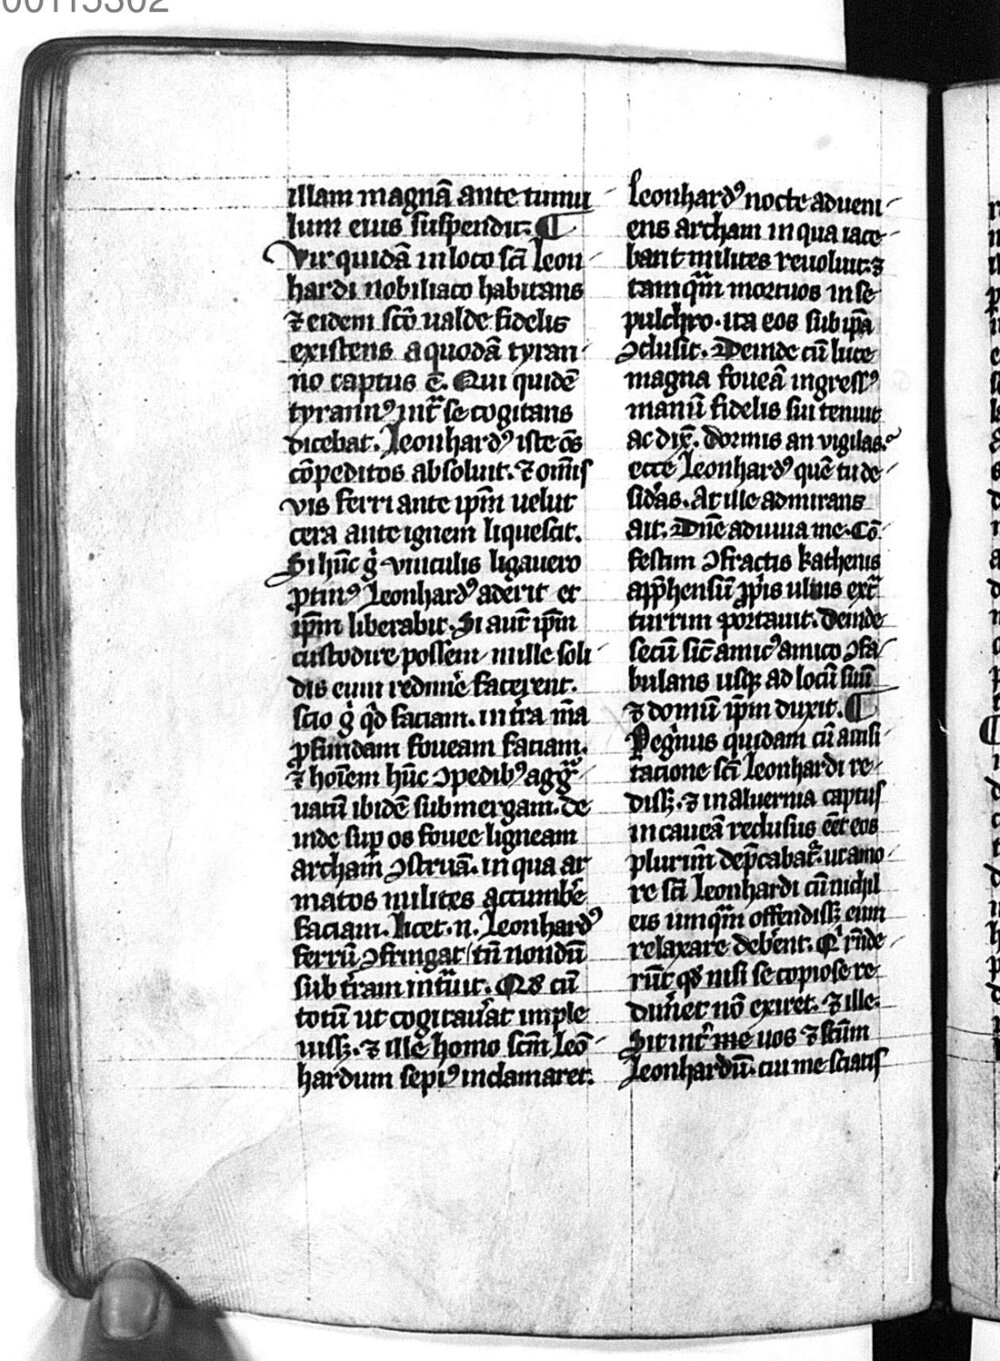 00115302
illam magnā ante tumu
lum eius suspendit: ¶
Vir quidā in loco scī Leon
hardi nobiliaco habitans
⁊ eidem scō ualde fidelis
existens a quodā tyran
no captus ē. Qui quidē
tyrannꝰ int̄ se cogitans
dicebat. Leonhardꝰ iste oēs
cōpeditos absoluit. ⁊ omīs
vis ferri ante ip̄m uelut
cera ante ignem liquescit.
Si hūc g̊ vinculis ligauero
ꝓtinꝰ Leonhardꝰ aderit et
ip̄m liberabit. Si aut̄ ip̄m
custodire possem mille soli
dis eum redim̄e facerent.
scio g̊ qd̄ faciam. in tr̄a m̄a
ꝓfundam foueam faciam.
⁊ hoīem hūc ꝯpedibꝰ aggͣ
uatū ibidē submergam. de
inde sup̄ os fouee ligneam
archam ꝯstruā. in qua ar
matos milites accumbē
faciam. licet .n. Leonhardꝰ
ferrū ꝯfringat / tn̄ nondū
sub tr̄am intͣuit. Qd̄ cū
totū ut cogitau̓at imple
uissꝫ. ⁊ ille homo scm̄ Leō
hardum sepiꝰ inclamaret.
Leonhardꝰ nocte adueni
ens archam in qua iace
bant milites reuoluit. ⁊
tamqͣm mortuos in se
pulchro. ita eos sub ip̄a
ꝯclusit. Deinde cū luce
magna foueā ingressꝰ
manū fidelis sui tenuit
ac dix̄. dormis an vigilas.
ecce Leonhardꝰ quē tu de
sid̓as. At ille admirans
ait. Dn̄e adiuua me. Cō
festim ꝯfractis kathenis
app̄hensū ꝓpͥis ulnis ext̄
turrim portauit. deinde
secū sic̄ amicꝰ amico ꝯfa
bulans usqꝫ ad locū suū
⁊ domū ip̄m duxit. ¶
Peg̓nus quidam cū a uisi
tacione scī Leonhardi re
dissꝫ. ⁊ in aluernia captus
in caueā reclusus eēt eos
plurim̄ dep̄cabat᷑. ut amo
re scī Leonhardi cū nichil
eis umqͣm offendissꝫ eum
relaxare deb̓ent. Qͥ rn̄de
rūt qd̄ nisi se copiose re
dim̓et nō exiret. ⁊ ille.
Sit int̓ me uos ⁊ scm̄
Leonhardū. cui me sciatis